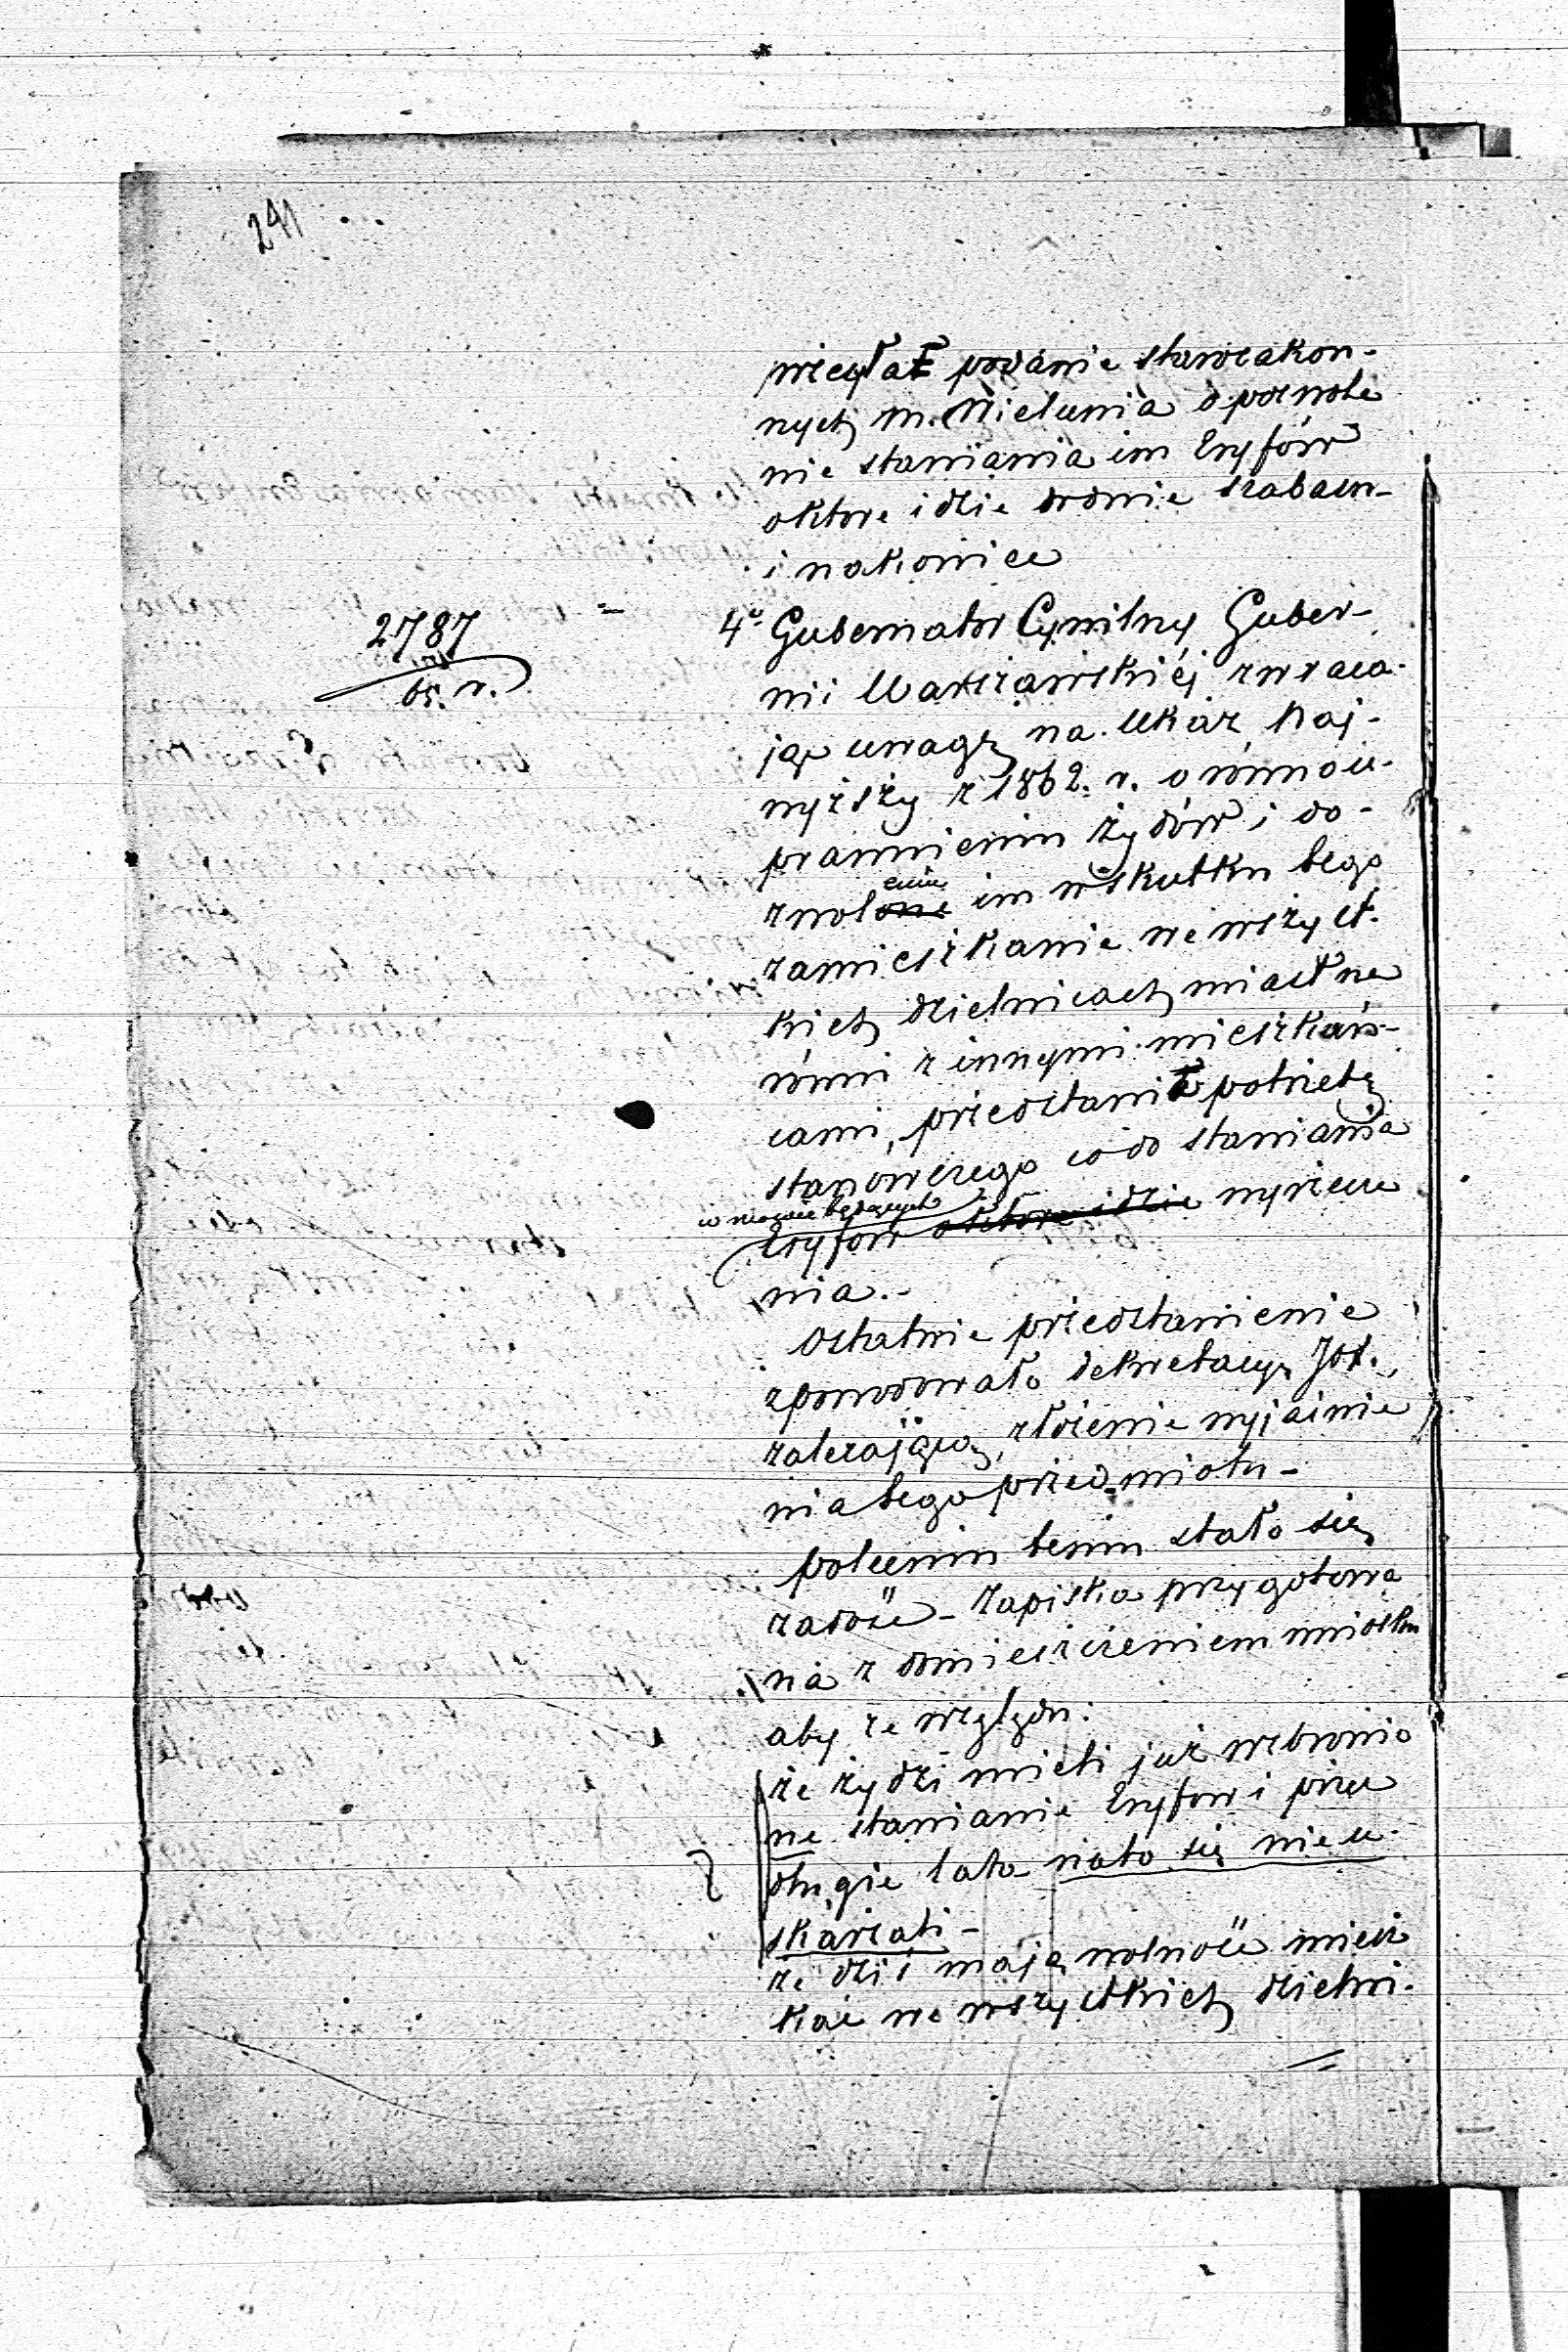 241
wręczył podanie starozakon-
nych m. Wielunia o pozwole
nie stawiania im Eryfów
o które idzie w dnie szabasu-
i nakoniec
2787
65. r.
4o Gubernator Cywilny Guber-
nii Warszawskiéj zwraca-
jąc uwagę na Ukaz Naj-
wyższy z 1862. r. o równou-
prawnieniu żydów i do-
zwolenie im w skutku tego
zamieszkanie we wszyst-
kich dzielnicach miast na
równi z innymi mieszkań-
cami, przedstawił potrzebę
stanowczego co do stawiania
w mowie będących
Eryfów o które idzie wyrzecze
nia.-
Ostatnie przedstawienie
spowodowało dekretacyę JO X.,
zalecającą złożenie wyjaśnie
nia tego przedmiotu -
poleceniu temu stało się
zadość - Zapiska przygotowa
na z omieszczeniem wniosku
aby ze względu:
że żydzi mieli już wzbronio
ne stawianie Eryfów i przez
długie lata na to się nie u-
skarżali -
że dziś mają wolność miesz
kać we wszystkich dzielni-